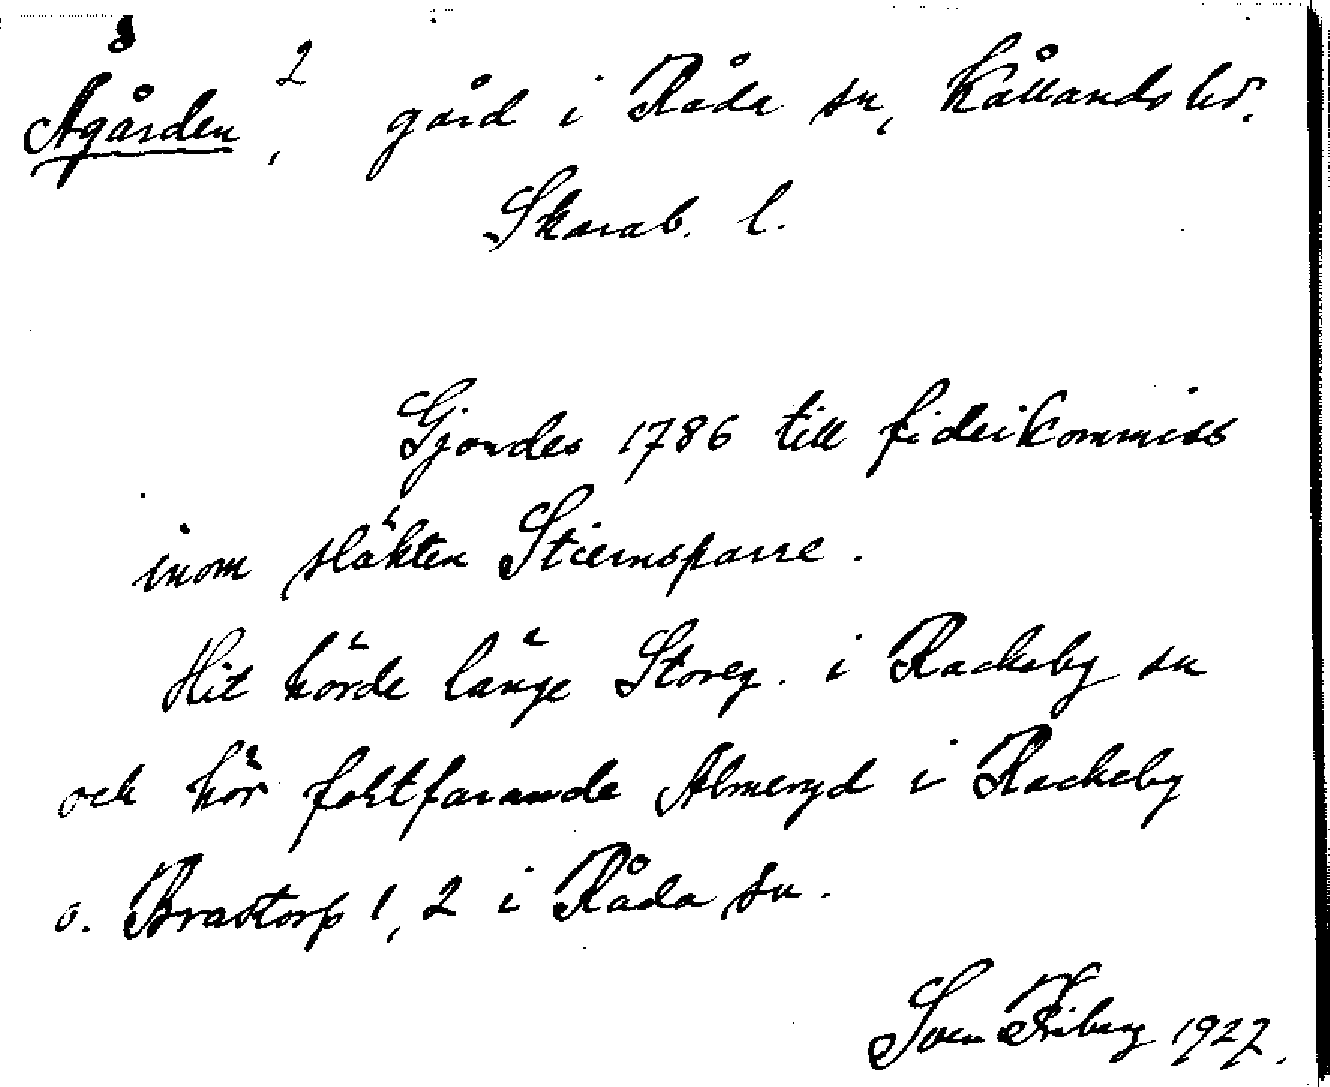 Ågården, 2 gård i Råda sn, Kållands hd.
Skarab. l.
Gjordes 1786 till fideikommiss
inom släkten Stiernsparre.
Hit hörde länge Storeg. i Rackeby sn
och hör fortfarande Almeryd i Rackeby
o. Brastorp 1, 2 i Råda sn.
Sven Friberg 1927.